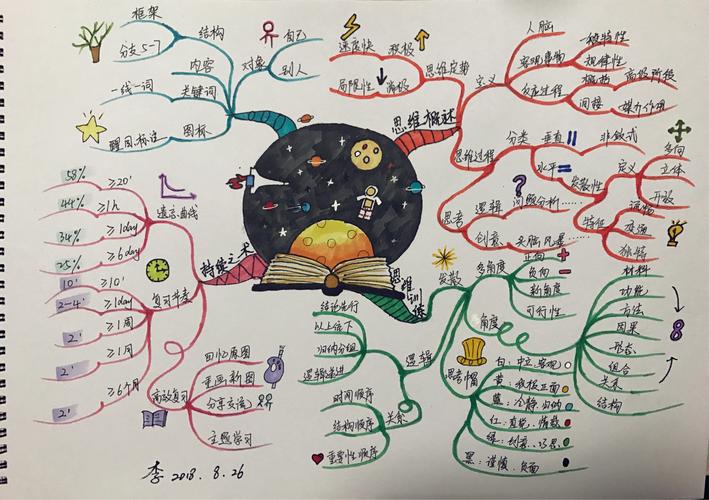 框架
分支5-7
结构
内容
一线一词
关键词
醒目标注
图标
对象
自己
别人
速度快
积极
局限性
消极
思维定势
思维概述
定义
人脑
客观事物
规律性
反应过程
概括
高级阶段
间接
媒介作用
思维过程
分类
垂直
非此式
水平
发散性
定义
多向
立体
开放
特征
流畅
变通
独特
思考
逻辑
问题分析
创意
头脑风暴
58%
≥20'
44%
≥1h
34%
≥1day
25%
≥6day
遗忘曲线
持续之术
10'
≥10'
2-4'
≥1day
2'
≥1周
2'
≥1月
2'
≥6个月
复习节奏
高效复习
回忆原图
重画新图
分享交流
主题学习
思维训练
发散
多角度
正向
负向
新角度
可行性
角度
材料
功能
方法
因果
形态
组合
关系
结构
思考帽
白:中立、客观
黄:积极正面
蓝:冷静、归纳
红:直觉、情感
绿:创意、巧思
黑:谨慎、负面
逻辑
结论先行
以上统下
归纳分组
逻辑递进
关系
时间顺序
结构顺序
重要性顺序
李 2018.8.26